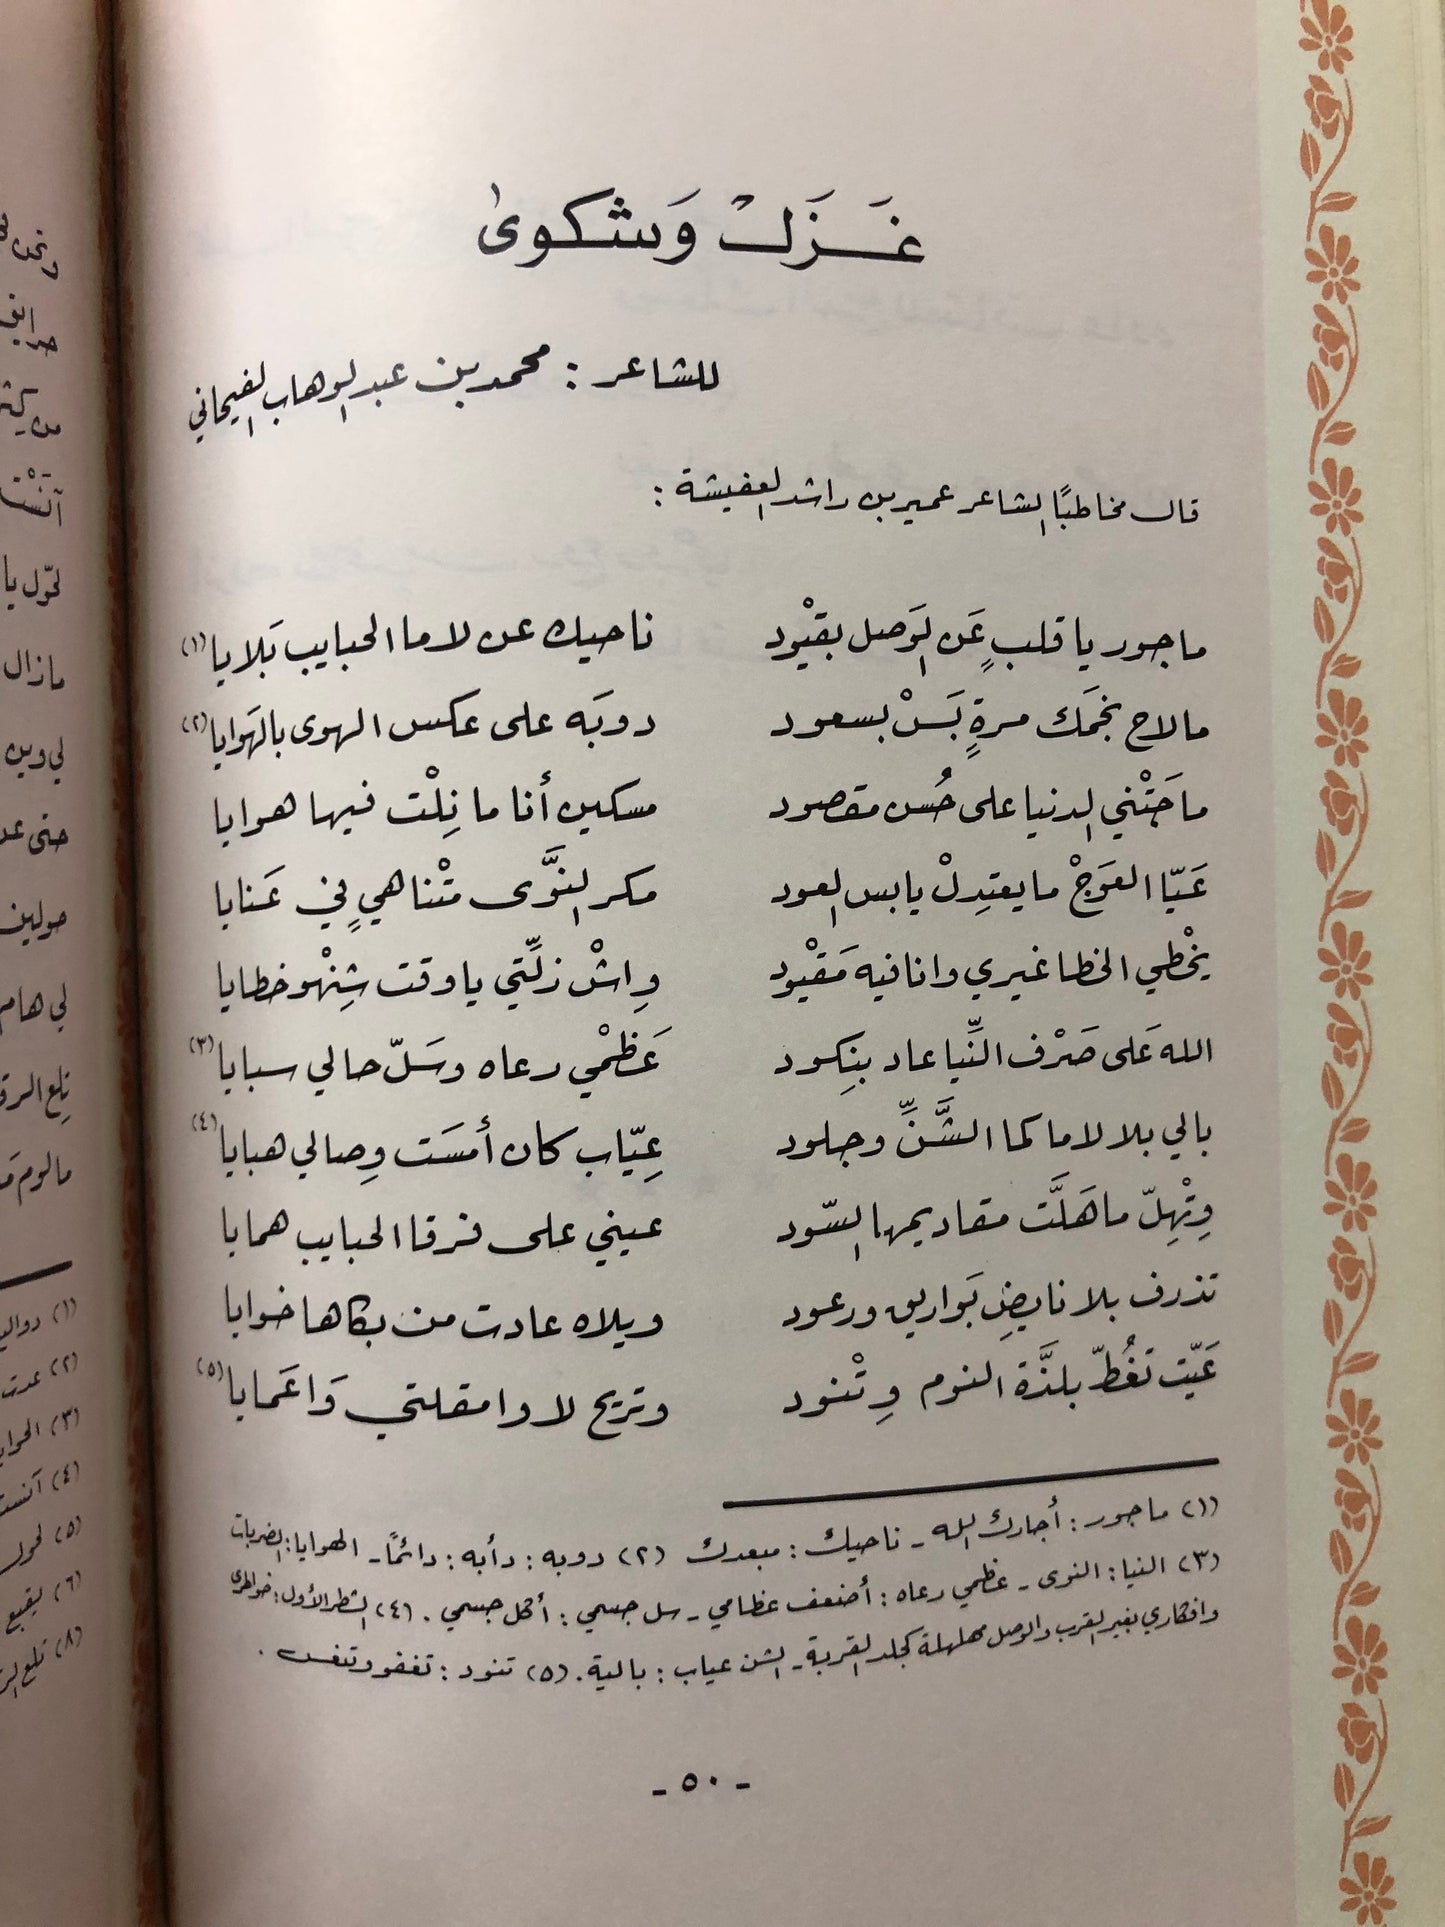 غَزَلْ وَشكوىٰ
للشاعر : محمد بن عبد الوهاب الفيحاني
قال مخاطبًا الشاعر عمير بن راشد العفيشة :
ماجور يا قلبٍ عَن الوَصل بقيْود ناحيك عن لاما الحبايب بَلايا (١)
مالاح نجمَك مرةٍ بَسْ بسعود دوبَه على عكس الهوى بالهَوايا (٢)
ما جَتْني الدنيا على حُسن مقصود مسكين أنا ما نِلْت فيها هوايا
عَيّا العوَجْ ما يعتدِلْ يابس العود مكر النوَّى متْناهيٍ في عَنايا
يخْطي الخطا غيري وانا فيه مَقيْود وِاشْ زلّتي يا وقت شِنْهو خطايا
الله عَلى صَرْف النّيا عاد بنِكود عَظمْي رعاه وسَلّ حالي سبايا (٣)
بالي بلا لاما كما الشَّنِّ وجلود عِيّاب كان أمسَت وِصالي هبايا (٤)
وِتْهِلّ ما هَلَّت مقاديمها السّود عيني على فرقا الحبايب همايا
تذرف بلا نايضِ بَواريق ورعود ويلاه عادت من بكاها خوايا
عَيّت تغُطّ بلذَّة النوم وِتْنود وتريح لا وا مقلتي وَاعَمايا (٥)
(١) ماجور : أجارك الله - ناحيك : مبعدك (٢) دوبه : دأبه : دائماً - الهوايا : الضربات
(٣) النيا : النوى - عظمي رعاه : أضعف عظامي - سل جسمي : أنحل جسمي . (٤) الشطر الأول : خواطري
وافكاري بغير القرب والوصل مهلهلة كجلد القربة - الشن عياب : بالية . (٥) تنود : تغفو وتنعس .
- ٥٠ -